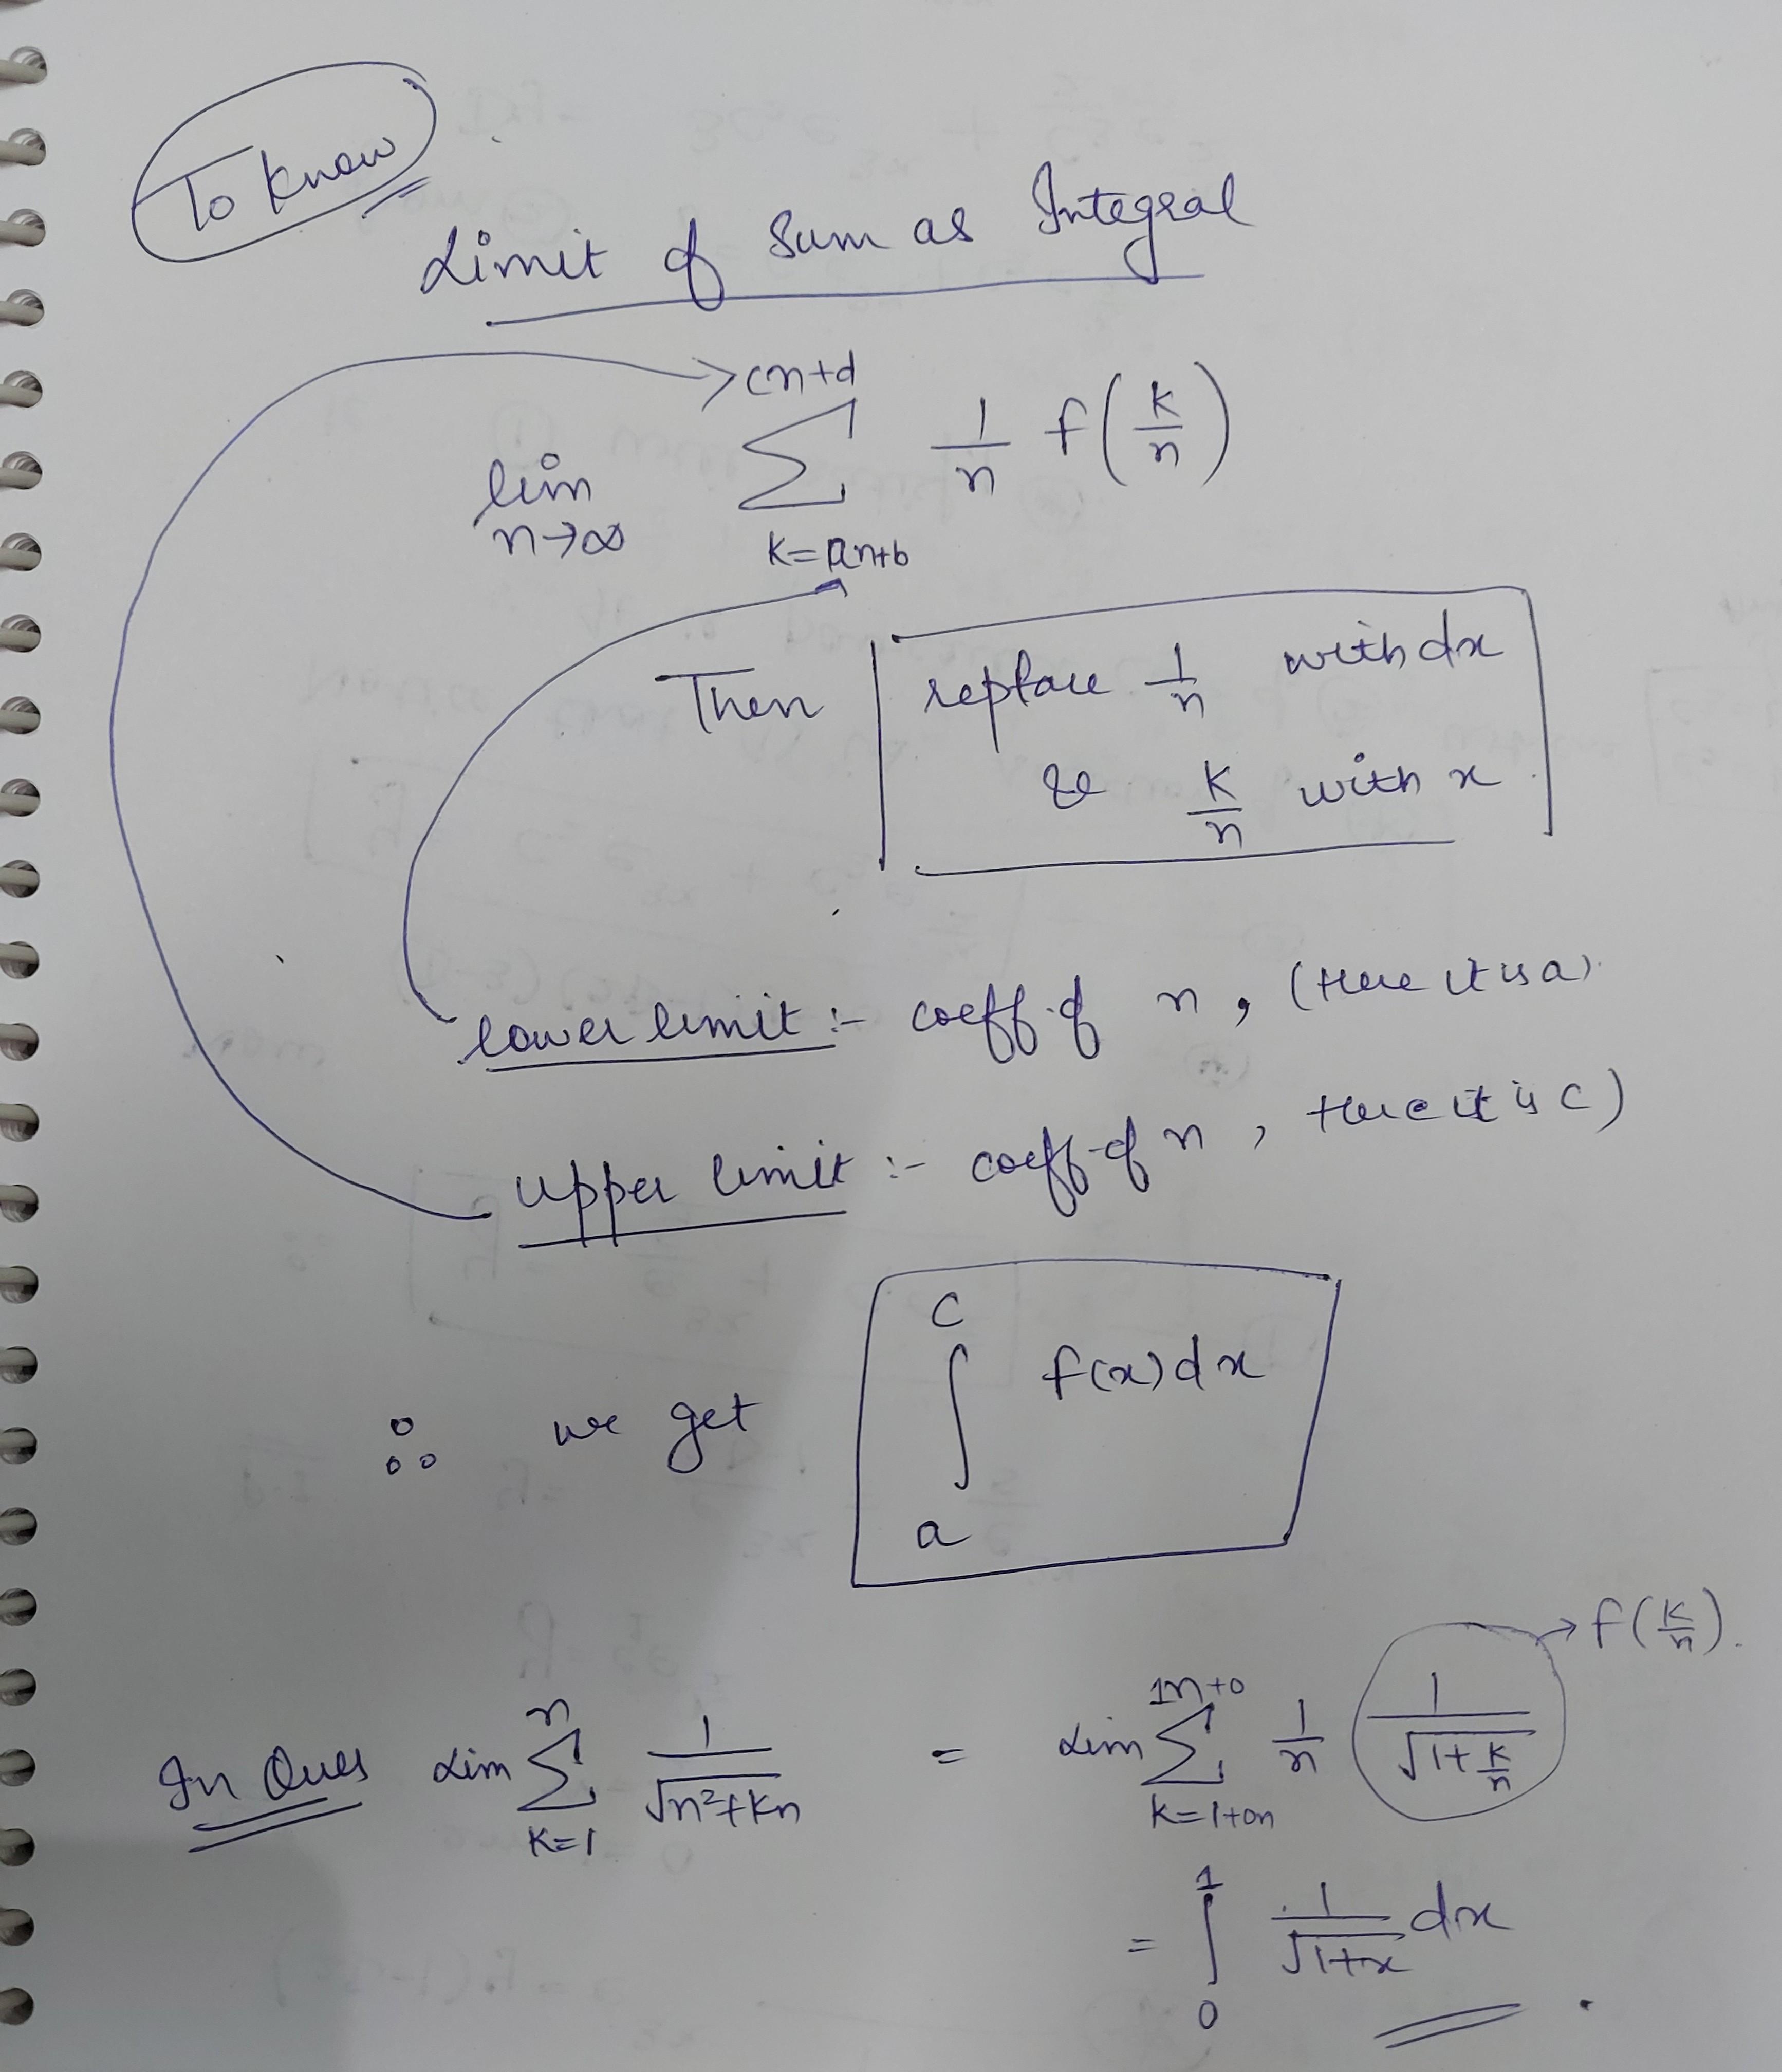 To know
Limit of Sum as Integral
lim n→∞ cn+d ∑ k=an+b 1/n f(k/n)
Then replace 1/n with dx
& k/n with x
lower limit :- coeff. of n, (Here it is a)
upper limit :- coeff. of n, Here it is c)
∴ we get c ∫ a f(x)dx
f(k/n).
In Ques Lim n ∑ k=1 1/√n²+kn = Lim 1n+0 ∑ k=1+0n 1/n 1/√1+k/n
= 1 ∫ 0 1/√1+x dx